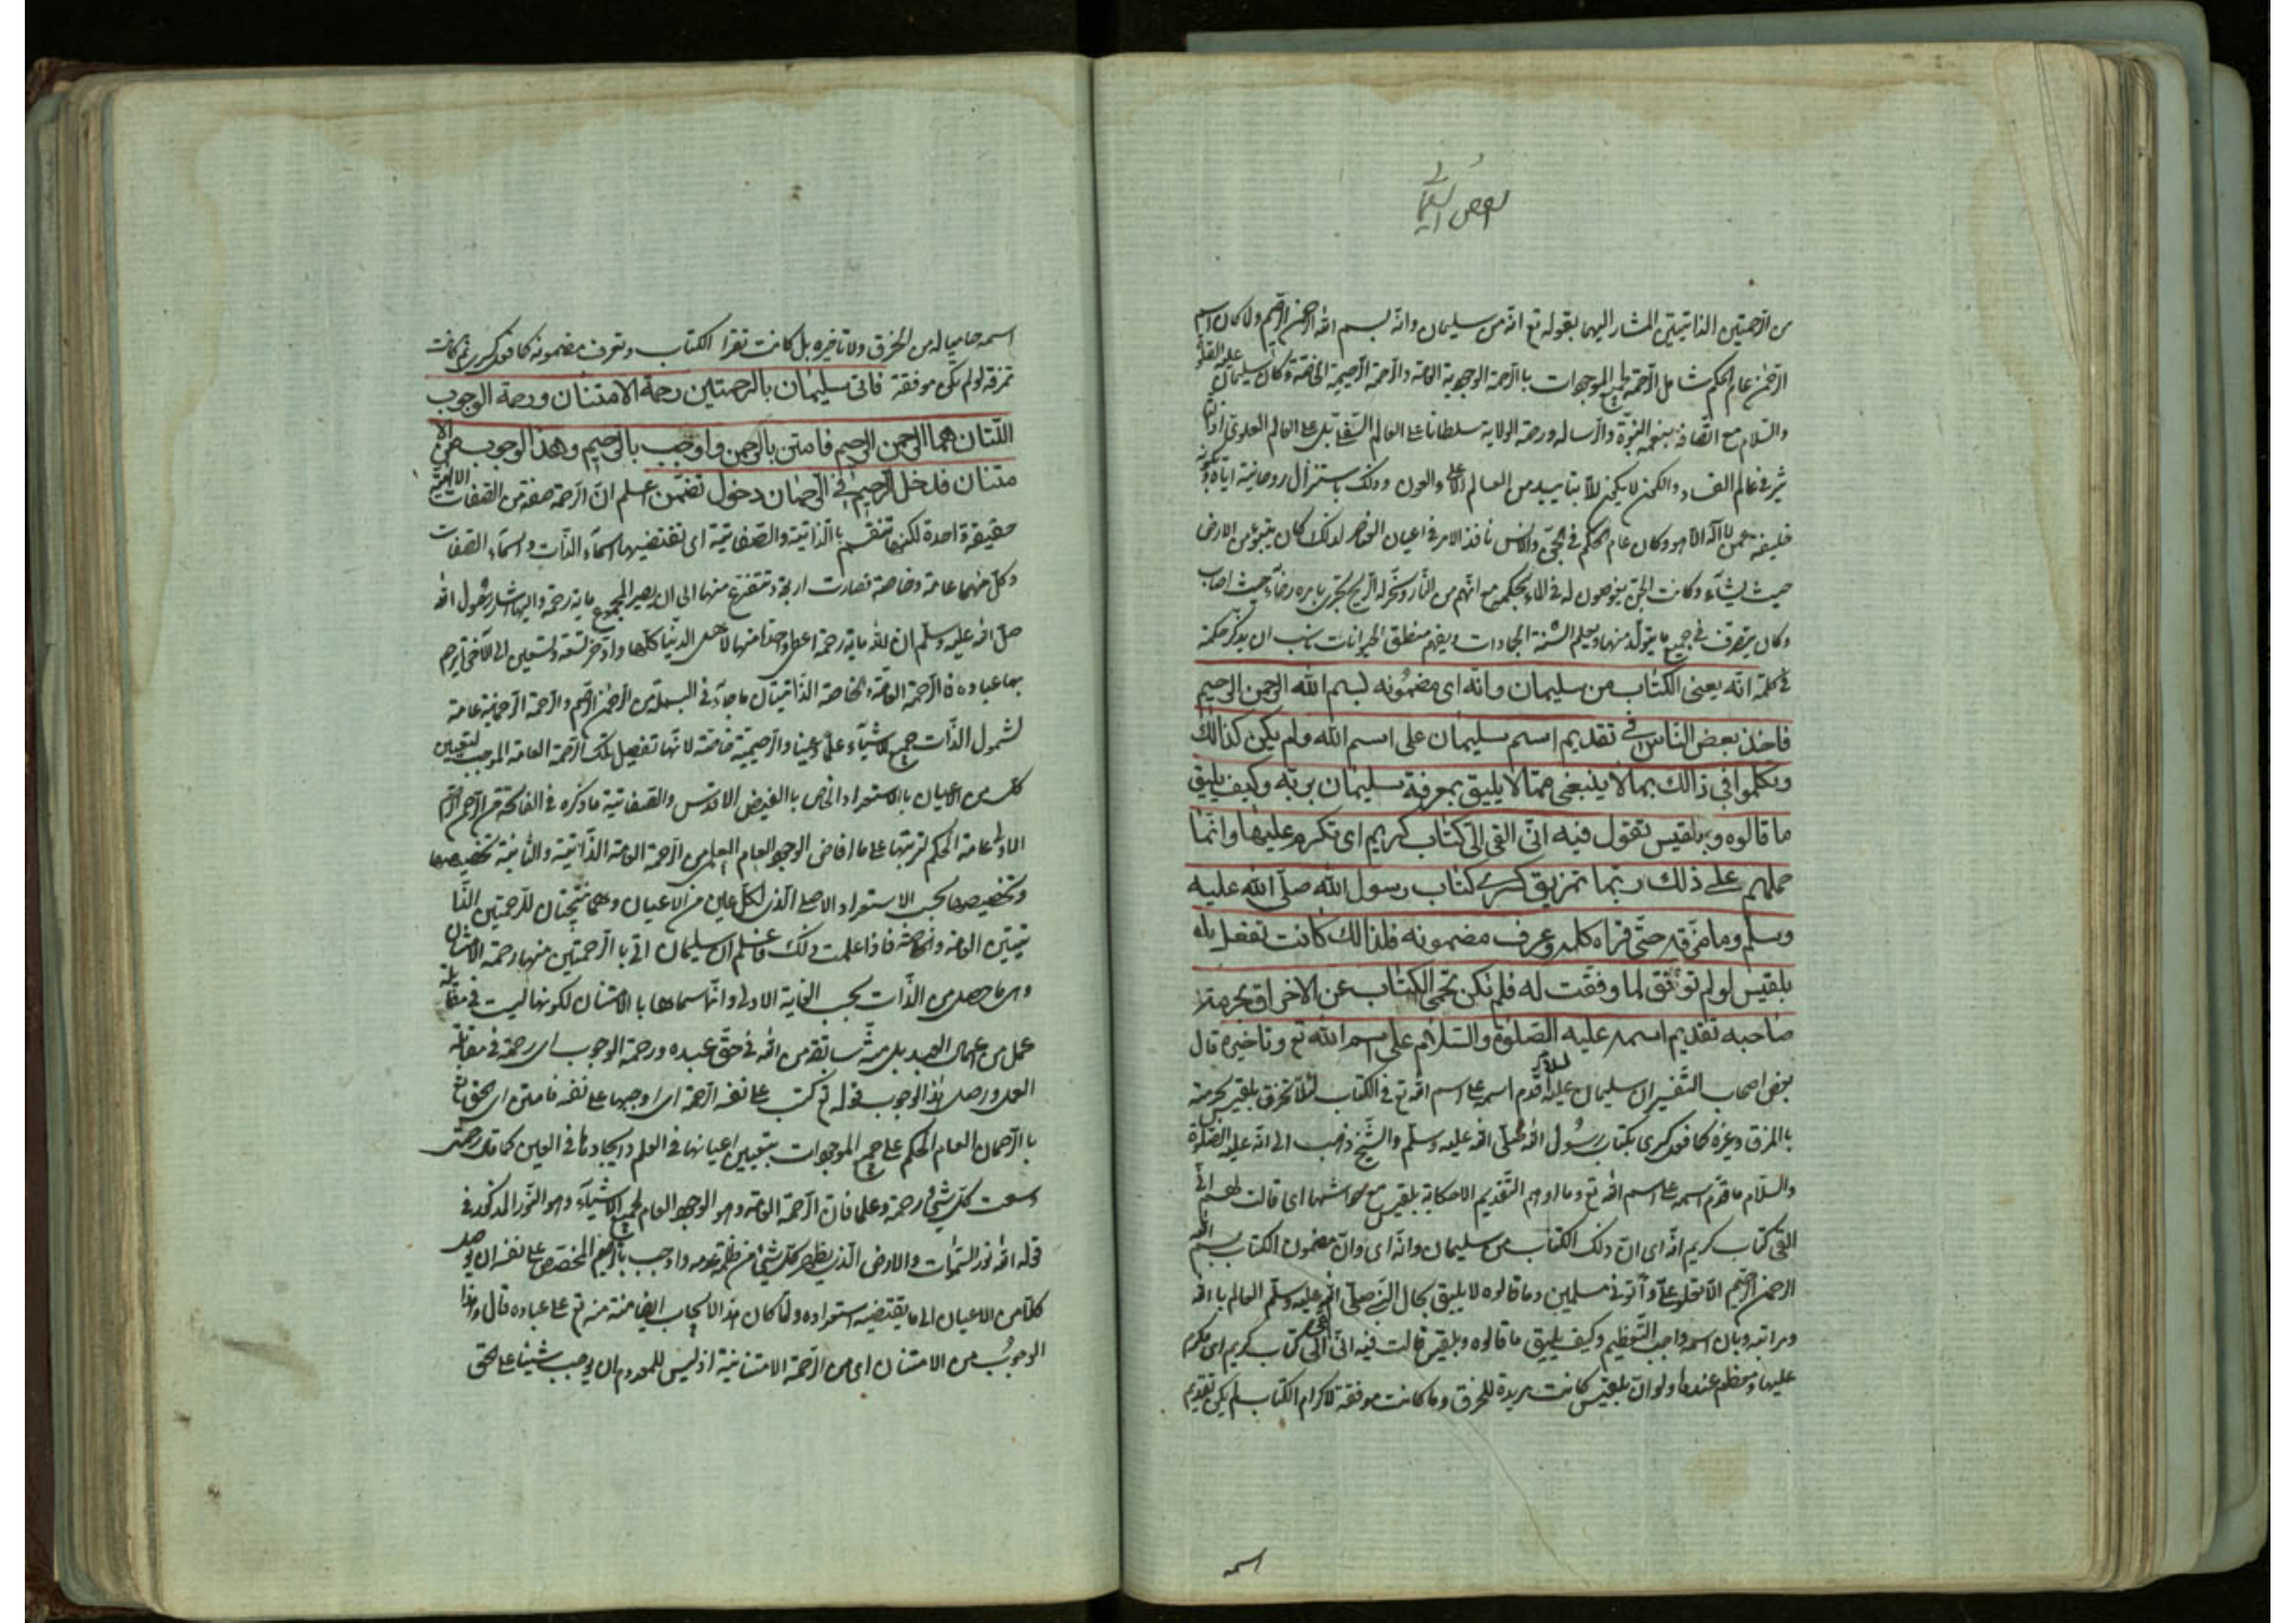 من الرحمتين الذاتيتين المشار اليهما بقوله تع انه من سليمان وانه بسم الله الرحمن الرحيم ولما كان اسم
الرحمن عام الحكم شامل الرحمة لجميع الموجودات باالرحمة الوجودية العامة والرحمة الرحيمية الخاصة وكان سليمان عليه الصلوة
والسلام مع اتصافه بنعمة النبوة والرسالة ورحمة الولاية سلطانا على العالم السفلي بل على العالم العلوي اذ التا
ثير في عالم الفساد والكون لا يمكن الا بتاييد من العالم الاعلى والعون وذلك باستنزال روحانية اياه وبكونه
خليفة عمن لا اله الا هو وكان عام الحكم في الجن والانس نافذ الامر في اعيان العناصر لذلك كان يتبوء من الارض
حيث يشآء وكانت الجن يغوصون له في الماء بحكمه مع انهم من النار وسخر له الريح تجرى بامره رخآء حيث اصاب
وكان يتصرف في جميع ما يتولد منها ويعلم السنة الجمادات ويفهم منطق الحيوانات ناسب ان يذكر حكمة
في كلمته انه يعنى الكتاب من سليمان وانه اى مضمونه بسم الله الرحمن الرحيم
فاخذ بعض الناس في تقديم اسم سليمان على اسم الله ولم يكن كذالك
وتكلموا في ذالك بما لا ينبغى مما لا يليق بمعرفة سليمان بربه وكيف يليق
ما قالوه وبلقيس تقول فيه انى القى الى كتاب كريم اى تكرم عليها وانما
حملهم على ذلك ربما تمزيق كسرى كتاب رسول الله صلى الله عليه
وسلم وما مزقه حتى قراه كله وعرف مضمونه فلذالك كانت تفعل
بلقيس لو لم توفق لما وفقت له فلم تكن تحمى الكتاب عن الاخراق بحرمة
صاحبه تقديم اسمه عليه الصلوة والسلام على اسم الله تع وتاخيره قال
بعض اصحاب التفسير ان سليمان عليه السلام قدم اسمه على اسم الله تع في الكتاب لئلا تخرق بلقيس بحرمته
باالمزق وغيره كما فعل كسرى بكتاب رسول الله صلى الله عليه وسلم والشيخ ذهب الى انه عليه الصلوة
والسلام ما قدم اسمه على اسم الله تع وما اوهم التقديم الا حكاية بلقيس مع حواشيها اى قالت لهم انى
القى كتاب كريم انه اى ان ذلك الكتاب من سليمان وانه اى وان مضمون الكتاب بسم الله
الرحمن الرحيم الا تعلوا على وأتونى مسلمين وما قالوه لا يليق بحال النبي صلى الله عليه وسلم العالم باالله
ومراتبه وبان اسمه واجب التعظيم وكيف يليق ما قالوه وبلقيس قالت فيه انى القى الى كتاب كريم اى مكرم
عليها ومعظم عندها ولو ان بلقيس كانت مريدة للخرق وما كانت موفقة لاكرام الكتاب لم يكن تقديم
اسمه
اسمه حاميا له من الخرق ولا تاخيره بل كانت تقرا الكتاب وتعرف مضمونه كما فعل كسرى ثم كانت
تمزقه لو لم تكن موفقة فاتى سليمان بالرحمتين رحمة الامتنان ورحمة الوجوب
اللتان هما الرحمن الرحيم فامتن بالرحمن واوجب بالرحيم وهذا الوجوب من الا
متنان فدخل الرحيم في الرحمان دخول تضمن اعلم ان الرحمة صفة من الصفات الالهية
حقيقة واحدة لكنها تنقسم باالذاتية والصفاتية اى تقتضيها اسماء الذات واسماء الصفات
وكل منهما عامة وخاصة فصارت اربعة وتتفرع منها الى ان يصير المجموع ماية رحمة واليها اشار رسول الله
صلى الله عليه وسلم ان لله ماية رحمة اعطى واحدة منها لاهل الدنيا كلها وادخر تسعة وتسعين الى الآخرة يرحم
بها عباده فاالرحمة العامة والخاصة الذاتيتان ما جآء في البسملة من الرحمن الرحيم والرحمة الرحمانية عامة
لشمول الذات جميع الاشيآء علما وعينا والرحيمية خاصة لانها تفصيل تلك الرحمة العامة الموجب لتعيين
كل من الاعيان باالاستعداد الخاص باالفيض الاقدس والصفاتية ما ذكره في الفاتحة من الرحمن الرحيم
الاولى عامة الحكم لترتبها على ما افاض الوجود العام العلمى من الرحمة العامة الذاتية والثانية تخصيصها
وتخصيصها بحسب الاستعداد الاصلى الذى لكل عين من الاعيان وهما نتيجتان للرحمتين الذا
تيتين العامة والخاصة فاذا علمت ذلك فاعلم ان سليمان اتى باالرحمتين منها رحمة الامتنان
وهى ما حصل من الذات بحسب العناية الاولى وانما سماها باالامتنان لكونها ليست في مقابلة
عمل من اعمال العبد بل منة سابقة من الله في حق عبده ورحمة الوجوب اى رحمة في مقابلة
العمل واصل هذا الوجوب قوله تع كتب على نفسه الرحمة اى اوجبها على نفسه فامتن اى الحق تع
باالرحمان العام الحكم على جميع الموجودات بتعيين اعيانها في العلم وايجادها في العين كما قال رحمتى
وسعت كل شئ رحمة وعلما فان الرحمة العامة وهو الوجود العام لجميع الاشيآء وهو النور المذكور في
قوله الله نور السموات والارض الذى يظهر كل شئ من ظلمة عدمه واوجب باالرحيم المخصص على نفسه ان يوصل
كلا من الاعيان الى ما يقتضيه استعداده ولما كان هذا الايجاب ايضا منة منه تع على عباده قال وهذا
الوجوب من الامتنان اى من الرحمة الامتنانية اذ ليس للمعدوم ان يوجب شيئا على الحق